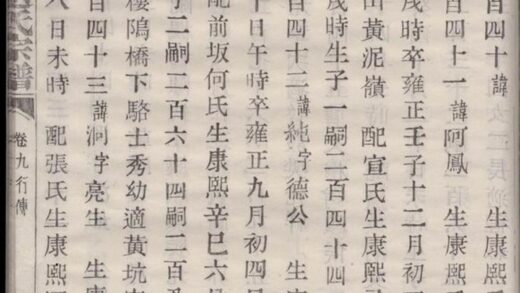 百四十 諱 生康熙
百四十一 諱阿鳳 生康熙
戌時卒雍正壬子十二月初
田黃泥嶺 配宣氏生康熙
戌時生子一嗣二百四十四
百四十二 諱純字德公 生康
十日午時卒雍正九月初四
配前坂何氏生康熙辛巳六
子二嗣二百六十四嗣二百
樓隖橋下駱士秀幼適黃坑
百四十三 諱泂字亮生 生康
八日未時 配張氏生康熙
氏宗譜 卷九行傳